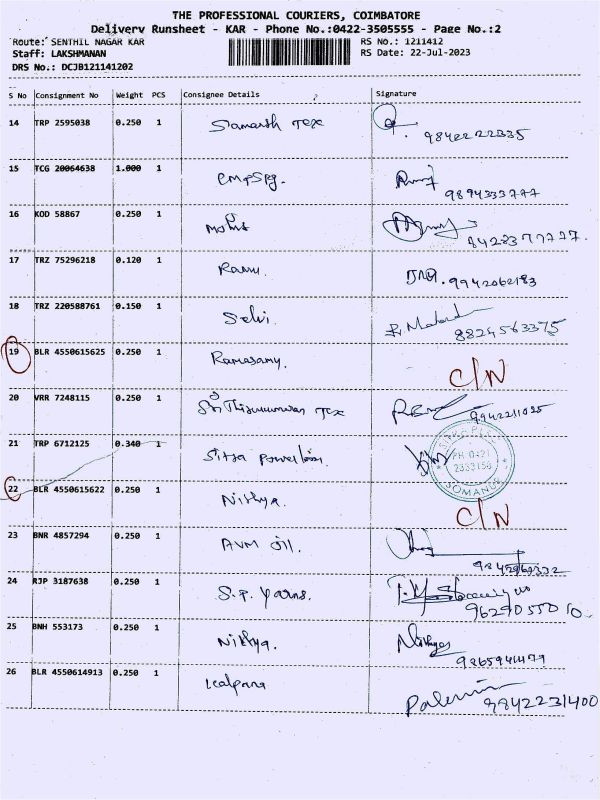 THE PROFESSIONAL COURIERS, COIMBATORE
Delivery Runsheet - KAR - Phone No.:0422-3505555 - Page No.:2
Route: SENTHIL NAGAR KAR RS No.: 1211412
Staff: LAKSHMANAN RS Date: 22-Jul-2023
DRS No.: DCJB121141202
S No Consignment No Weight PCS Consignee Details Signature
14 TRP 2595038 0.250 1 Samarsh Tex 9842222335
15 TCG 20064638 1.000 1 9894333777
16 KOD 58867 0.250 1 Mohit
17 TRZ 75296218 0.120 1 Ramu. 9942062183
18 TRZ 220588761 0.150 1 Selvi. 8824563375
19 BLR 4550615625 0.250 1 Ramasamy. C/N
20 VRR 7248115 0.250 1 Sri Tex 9942211025
21 TRP 6712125 0.340 1 PH 0421 2333156 SOMANUR
22 BLR 4550615622 0.250 1 Nithya. C/N
23 BNR 4857294 0.250 1 AVM oil.
24 RJP 3187638 0.250 1 S.P. Yarns. 9629055010
25 BNH 553173 0.250 1 Nithya.
26 BLR 4550614913 0.250 1 kalpana 9942231400